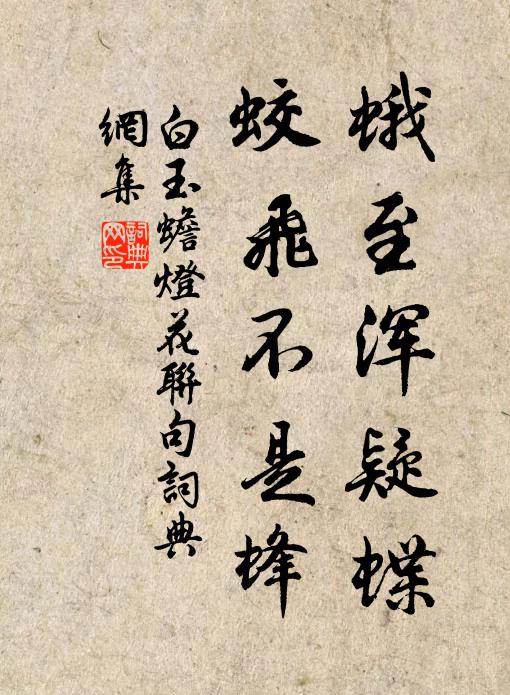 蛾至浑疑蝶
蛟飛不是蜂
白玉蟾燈花聯句詞典
網集
詞典网印